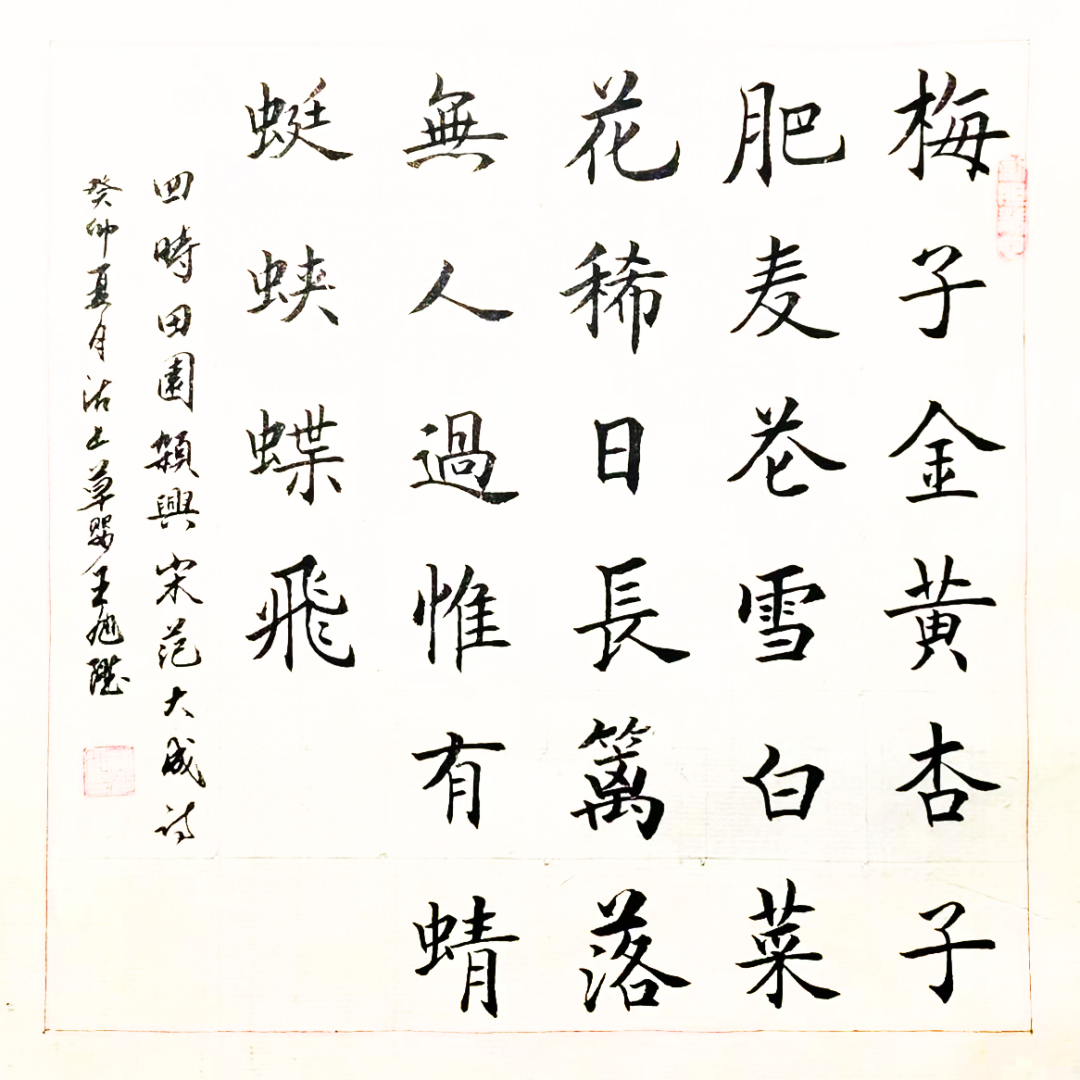 梅子金黄杏子
肥麦花雪白菜
花稀日長籬落
無人過惟有蜻
蜓蛺蝶飛
四時田園類興宋范大成詩
癸卯夏月沽上草婴王旭陞